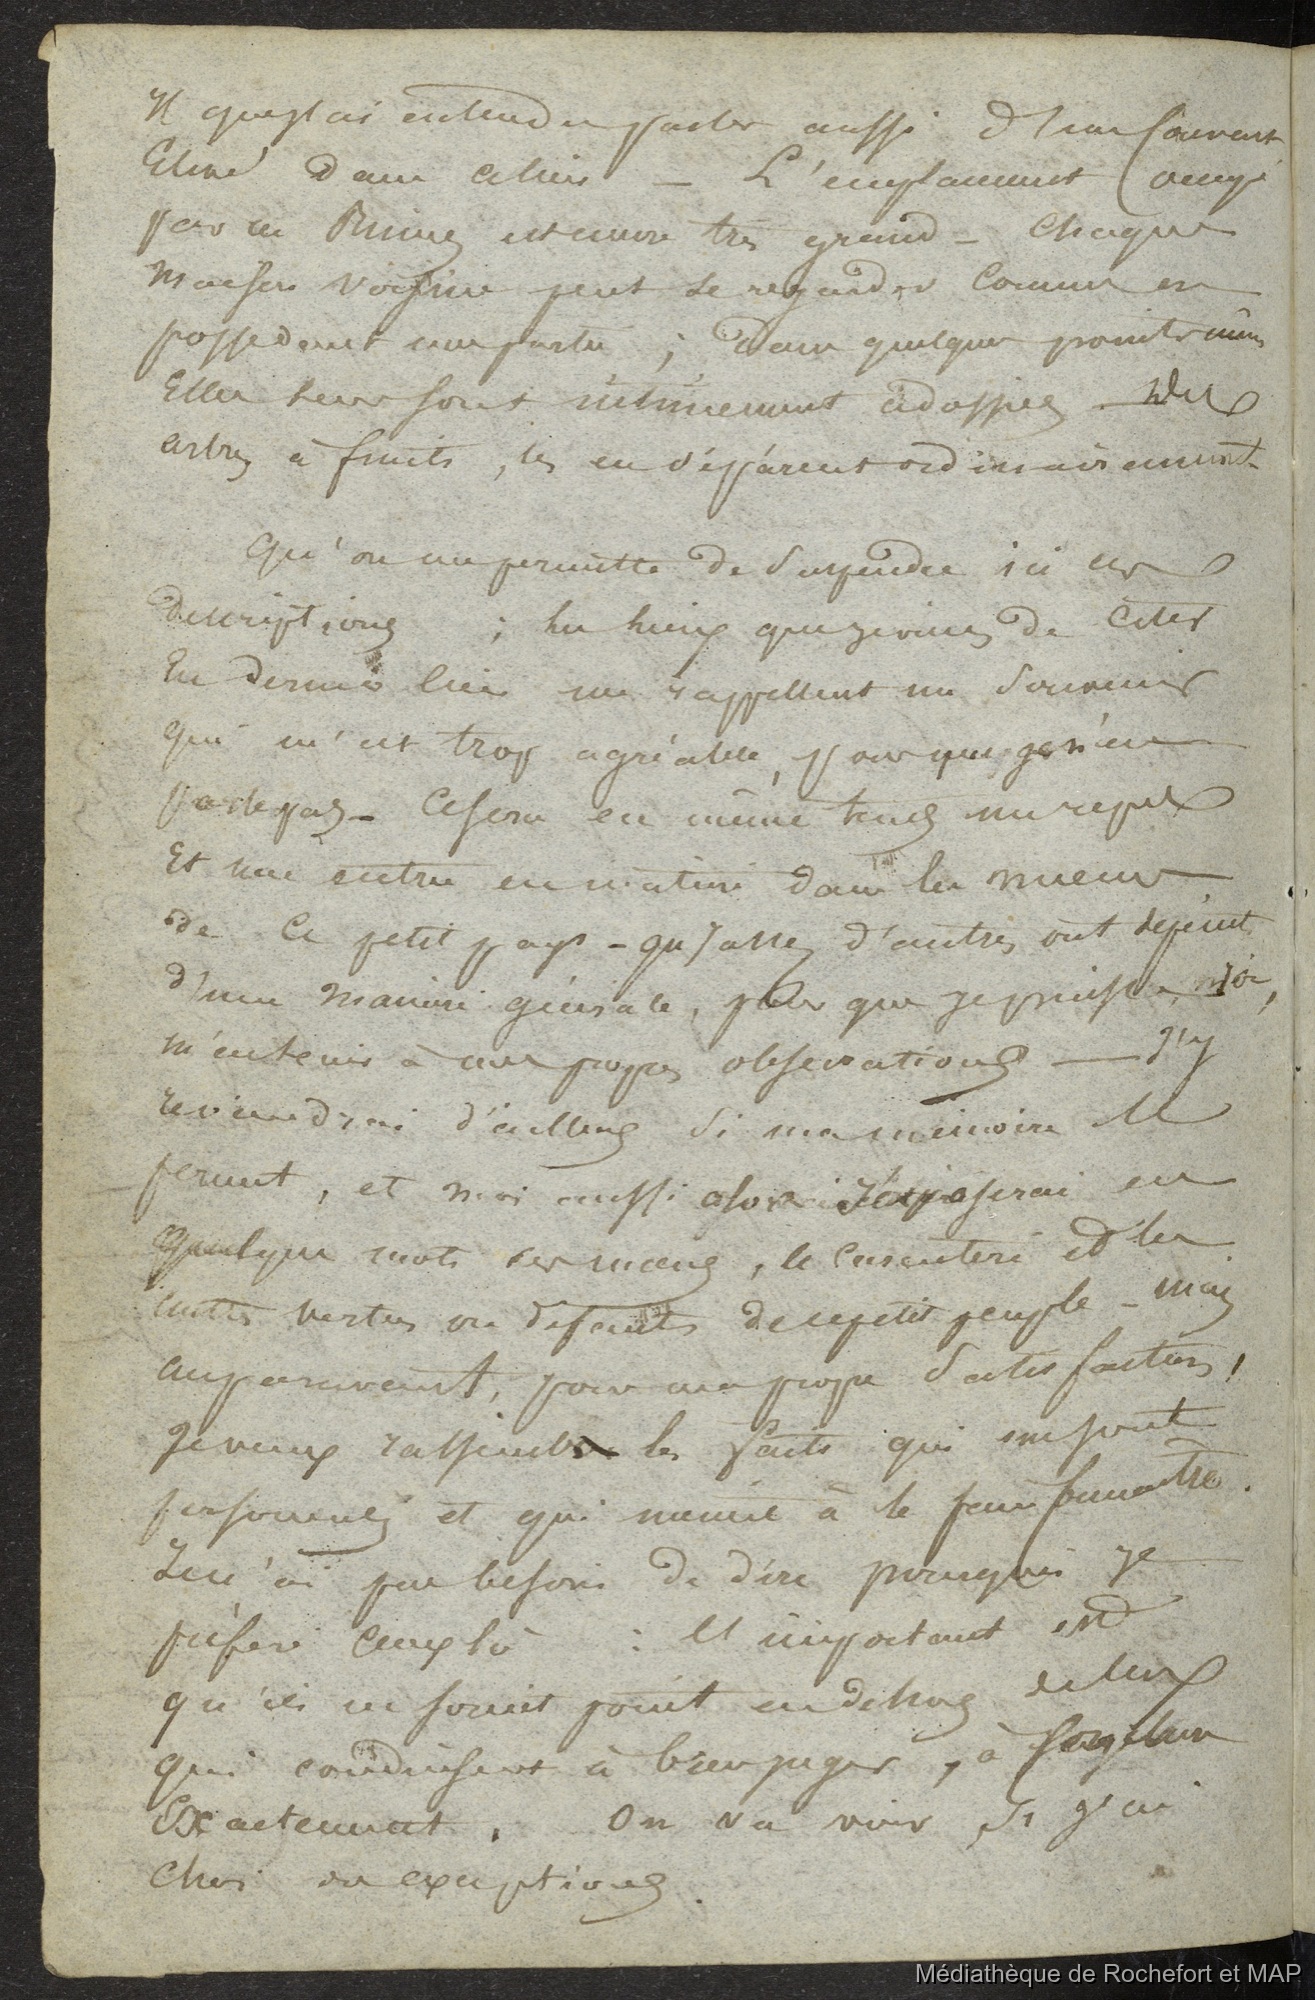 Il quej'ai entendu parler aussi d'un Couvent
Elevé dans ce lieu — L'emplacement occupé
par ces Ruines est encore très grand — Chaque
maison voisine peut se regarder comme en
possedant une partie ; dans quelques points même
Elles leur sont intimement adossées — Des
arbres à fruits, les en séparent ordinairement.
Qu'on me permette de suspendre ici ces
descriptions ; les lieux que je viens de citer
En dernier lieu me rappellent un souvenir
qui m'est trop agréable, pour que je n'en
parle pas — Ce sera en même tems un repos
Et une entrée en matière dans les mœurs
de ce petit pays — qu'assez d'autres ont dépeint
d'une manière générale, pour que je puisse, moi,
m'en tenir à mes propres observations — J'y
reviendrai d'ailleurs si ma mémoire le
permet, et moi aussi alors j'exposerai en
quelques mots ses mœurs, le caractère et les
autres vertus ou défauts de ce petit peuple — mais
auparavant, pour ma propre satisfaction,
Je veux rassembler les faits qui me sont
personnels et qui mènent à le faire connaitre.
Je n'ai pas besoin de dire pourquoi je
préfère ceux là : l'important est
qu'ils ne soient point en dehors de ceux
qui conduisent à bien juger, à
Exactement. On va voir si j'ai
choisi des exceptions.
Médiathèque de Rochefort et MAP